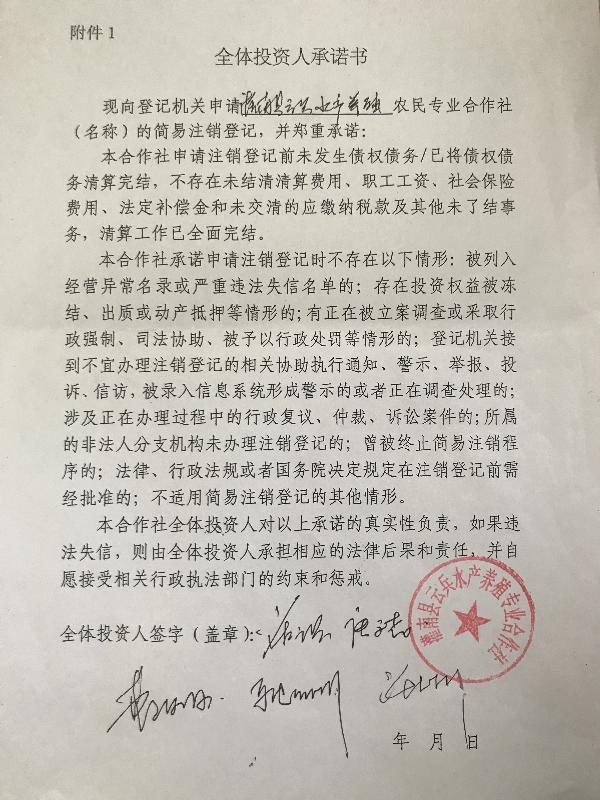 附件1
全体投资人承诺书
现向登记机关申请 农民专业合作社
（名称）的简易注销登记，并郑重承诺：
本合作社申请注销登记前未发生债权债务/已将债权债
务清算完结，不存在未结清清算费用、职工工资、社会保险
费用、法定补偿金和未交清的应缴纳税款及其他未了结事
务，清算工作已全面完结。
本合作社承诺申请注销登记时不存在以下情形：被列入
经营异常名录或严重违法失信名单的；存在投资权益被冻
结、出质或动产抵押等情形的；有正在被立案调查或采取行
政强制、司法协助、被予以行政处罚等情形的；登记机关接
到不宜办理注销登记的相关协助执行通知、警示、举报、投
诉、信访，被录入信息系统形成警示的或者正在调查处理的；
涉及正在办理过程中的行政复议、仲裁、诉讼案件的；所属
的非法人分支机构未办理注销登记的；曾被终止简易注销程
序的；法律、行政法规或者国务院决定规定在注销登记前需
经批准的；不适用简易注销登记的其他情形。
本合作社全体投资人对以上承诺的真实性负责，如果违
法失信，则由全体投资人承担相应的法律后果和责任，并自
愿接受相关行政执法部门的约束和惩戒。
南县云兵水产养殖专业合作社
全体投资人签字（盖章）：
年 月 日